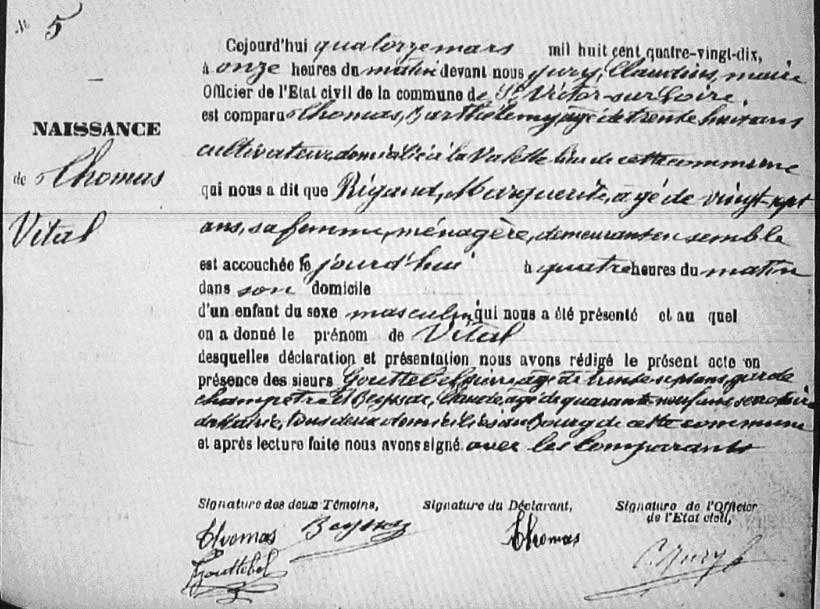 N° 5
NAISSANCE
de Thomas
Vital
Cejourd'hui quatorze mars mil huit cent quatre-vingt-dix,
à onze heures du matin devant nous Jury, Claudius, maire
Officier de l'Etat civil de la commune de St Victor-sur-Loire,
est comparu Thomas, Barthélemy, âgé de trente huit ans
cultivateur, domicilié à la Valette lieu de cette commune
qui nous a dit que Rigaud, Marguerite, âgé de vingt-sept
ans, sa femme, ménagère, demeurant ensemble
est accouchée le jourd'hui à quatre heures du matin
dans son domicile
d'un enfant du sexe masculin, qui nous a été présenté et au quel
on a donné le prénom de Vital
desquelles déclaration et présentation nous avons rédigé le présent acte en
présence des sieurs Gouttebel, Pierre, âgé de trente sept ans, garde
champêtre et Beysson, Claude, âgé de quarante neuf ans, secrétaire
de Mairie, tous deux domiciliés au Bourg de cette commune
et après lecture faite nous avons signé avec les comparants
Signature des deux Témoins, Signature du Déclarant, Signature de l'Officier
de l'Etat civil,
Thomas Beysson Thomas C. Jury
Gouttebel